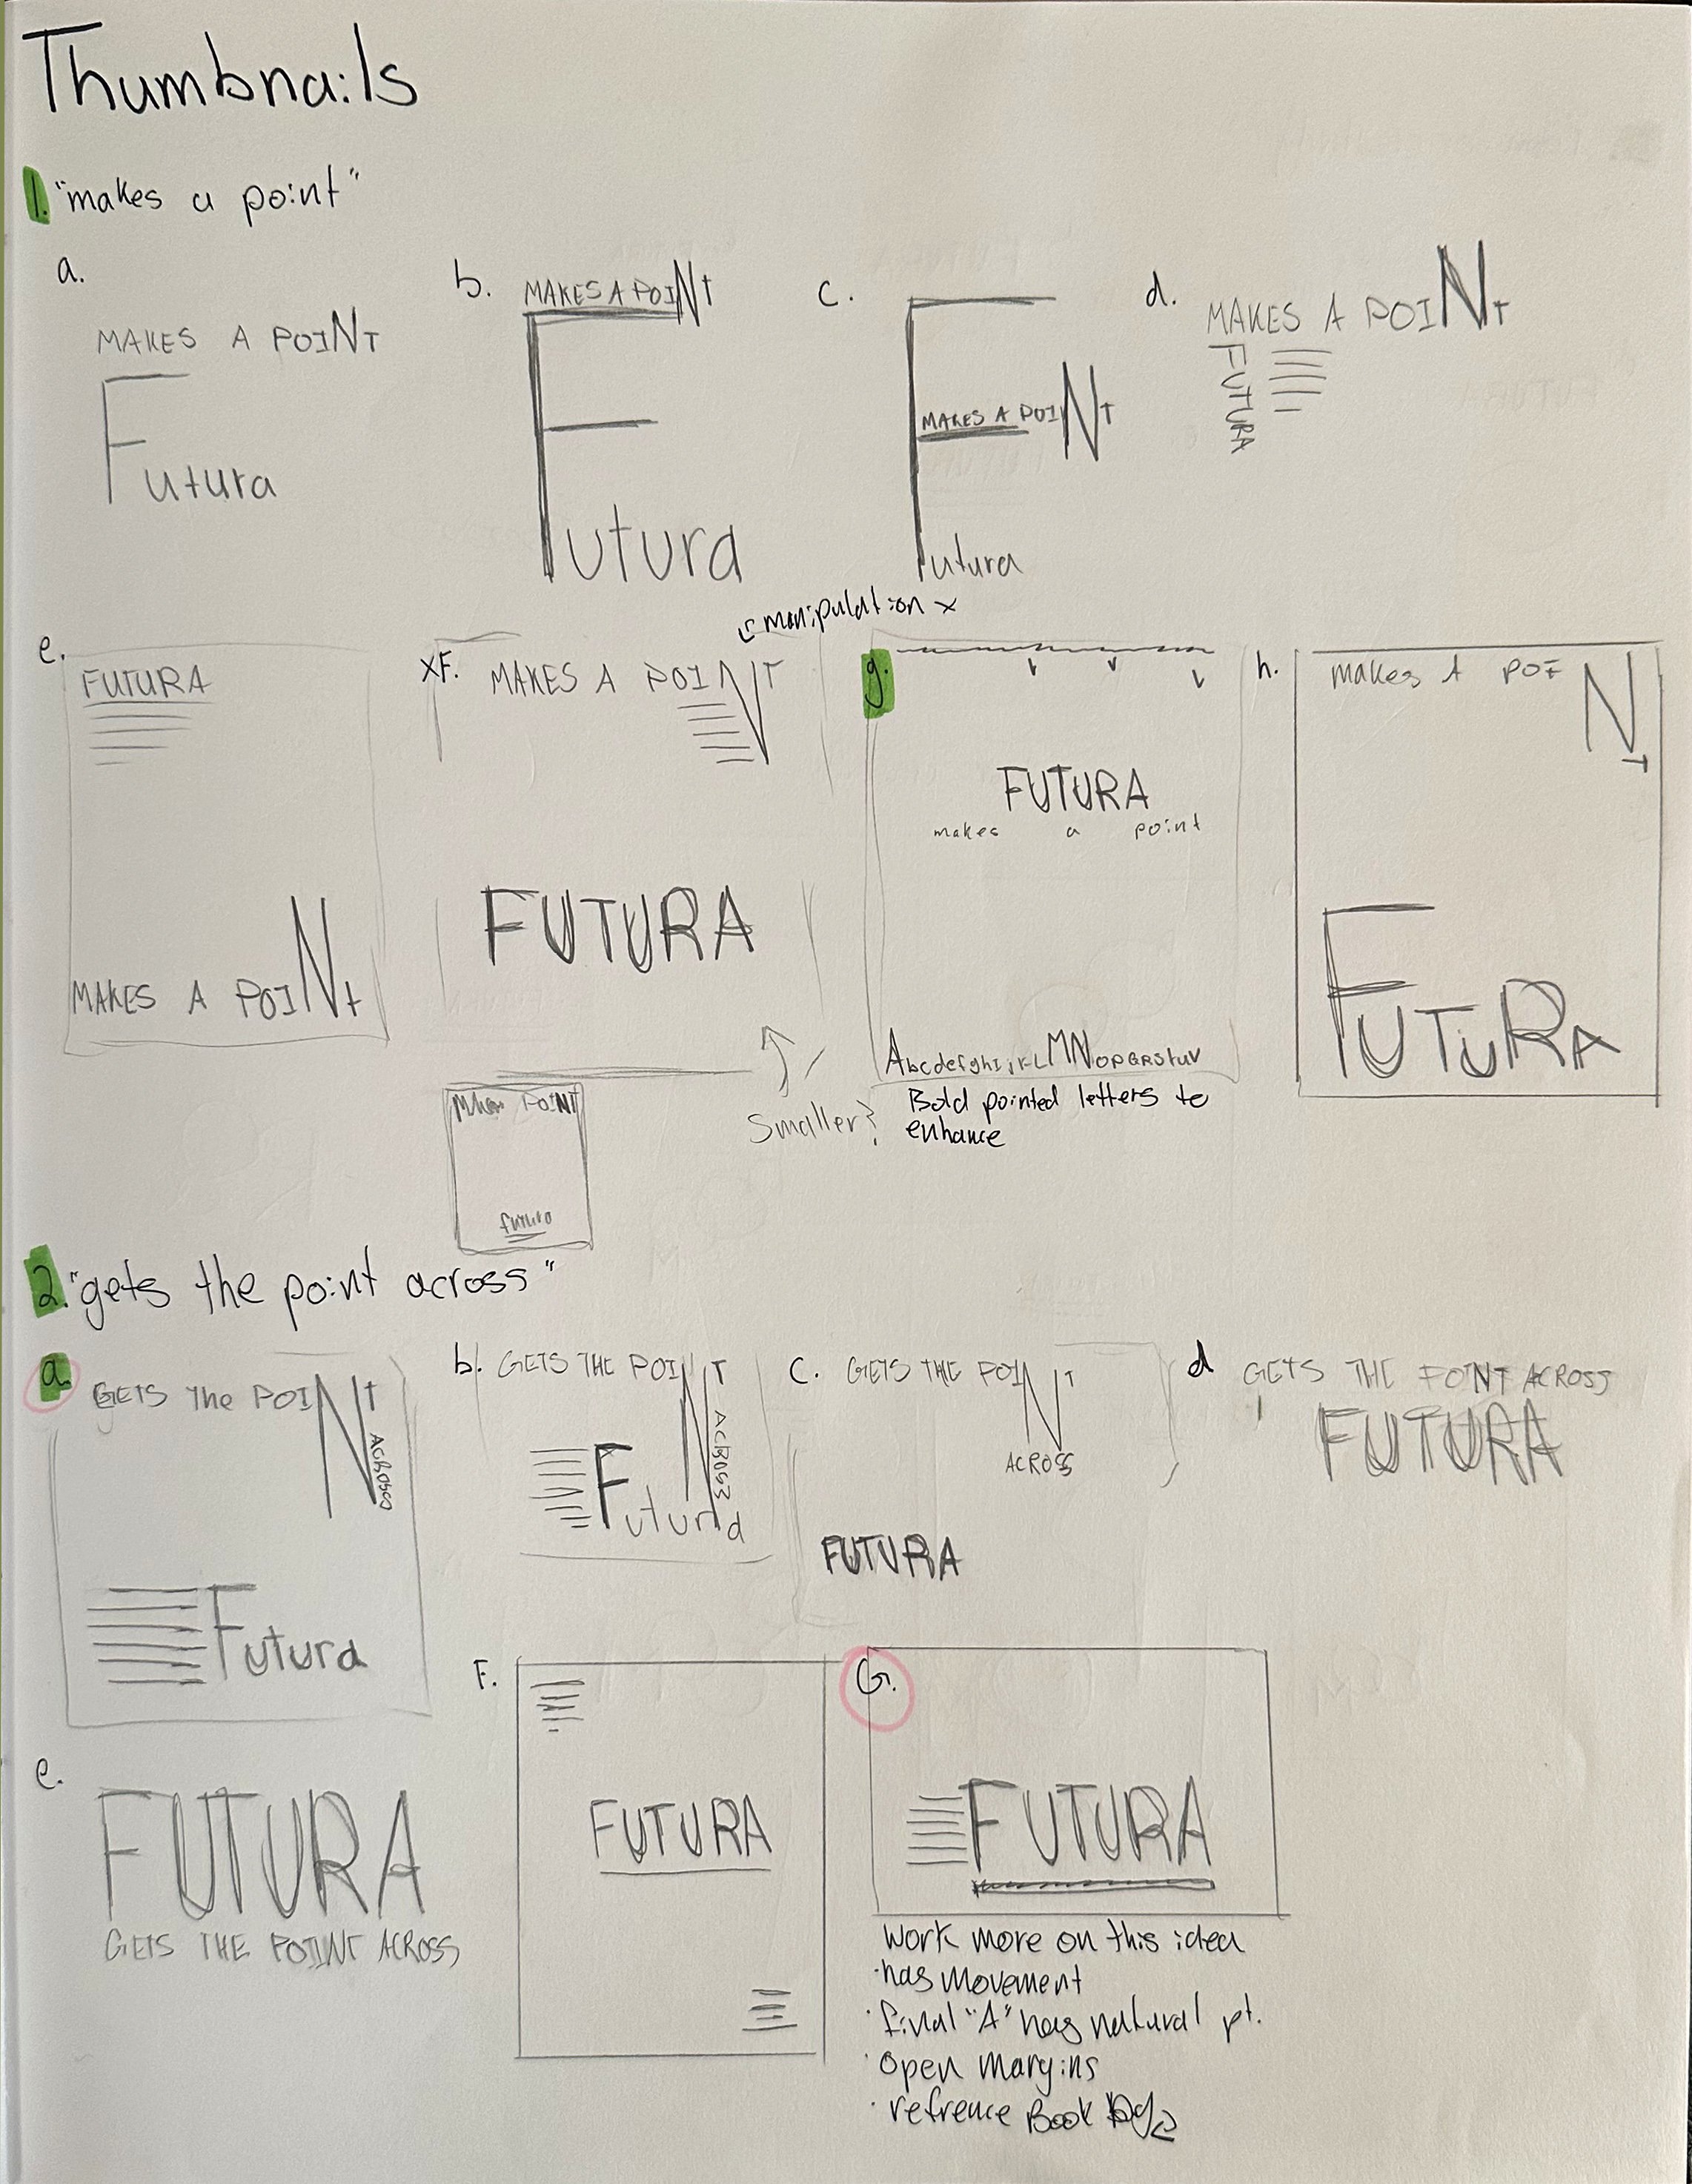 Thumbnails
1. "makes a point"
a.
MAKES A POINT
Futura
b.
MAKES A POINT
Futura
c.
MAKES A POINT
Futura
d.
MAKES A POINT
FUTURA
e.
FUTURA
MAKES A POINt
manipulation x
XF.
MAKES A POINT
FUTURA
Smaller?
POINT
futura
g.
FUTURA
makes a point
AbcdefghIjkLMNOPQRStuv
Bold pointed letters to
enhance
h.
makes A POINT
FUTURA
2. "gets the point across"
a.
GETS The POINT
ACROSS
Futura
b.
GETS THE POINT
ACROSS
Futura
c.
GETS THE POINT
ACROSS
FUTURA
d
GETS THE POINT ACROSS
FUTURA
e.
FUTURA
GETS THE POINT ACROSS
F.
FUTURA
G.
FUTURA
Work more on this idea
·has movement
·final "A" has natural pt.
·open margins
·refrence Book